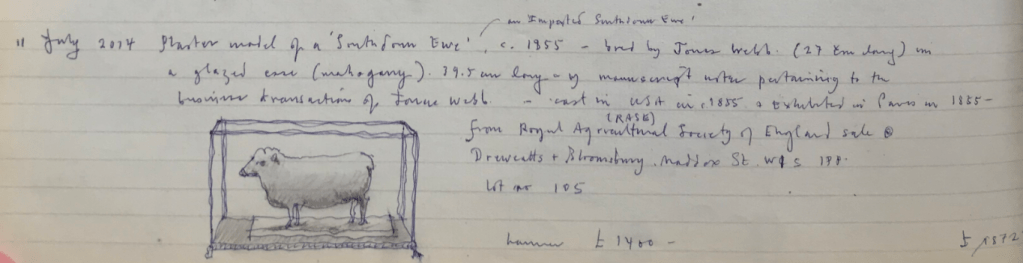 an Imported Southdown Ewe'
11 July 2014 Plaster model of a 'Southdown Ewe', c. 1855 - bred by Jonas Webb. (27 cm long) in
a glazed case (mahogany). 39.5 cm long - manuscript notes pertaining to the
business transaction of Jonas Webb - cast in USA in c1855 & Exhibited in Paris in 1855 -
(RASE)
from Royal Agricultural Society of England sale @
Dreweatts + Bloomsbury. Maddox St. W1S
Lot no 105
hammer £1400 -